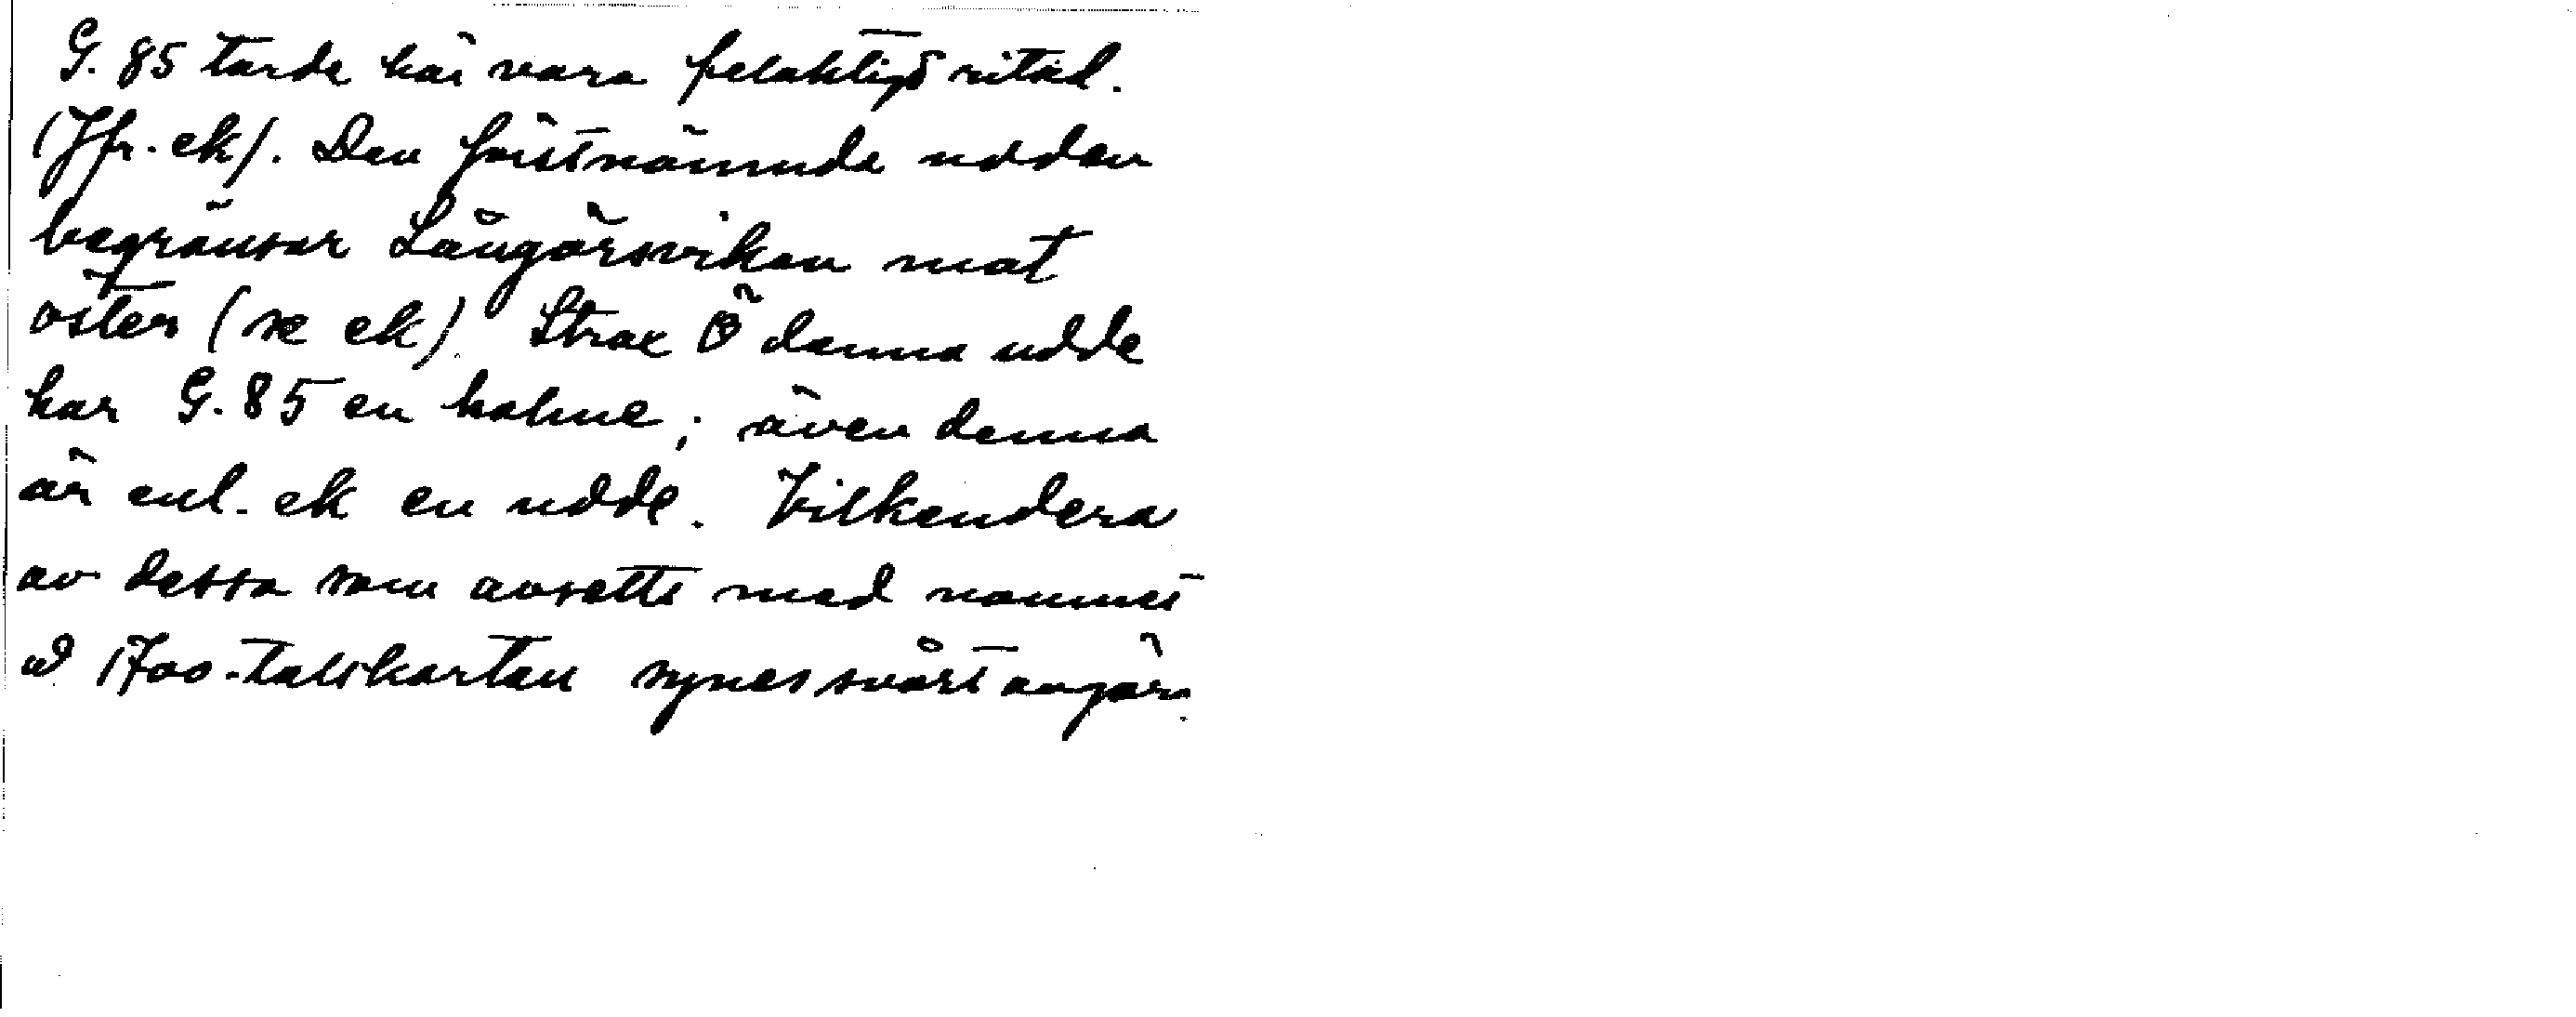 G. 85 torde här vara felaktigt ritad.
(Jfr. ek). Den förstnämnda udden
begränsar Långörsviken mot
öster (se ek). Strax Ö denna udde
har G. 85 en holme; även denna
är enl. ek en udde. Vilkendera
av dessa som avsetts med namnet
å 1700-talskartan synes svårt avgöra.